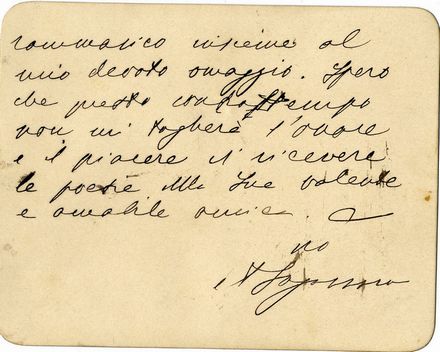 rammarico insieme al
mio devoto omaggio. Spero
che questo contrattempo
non mi togherà l'onore
e il piacere di ricevere
le poesie della Sua valente
e amabile amica.